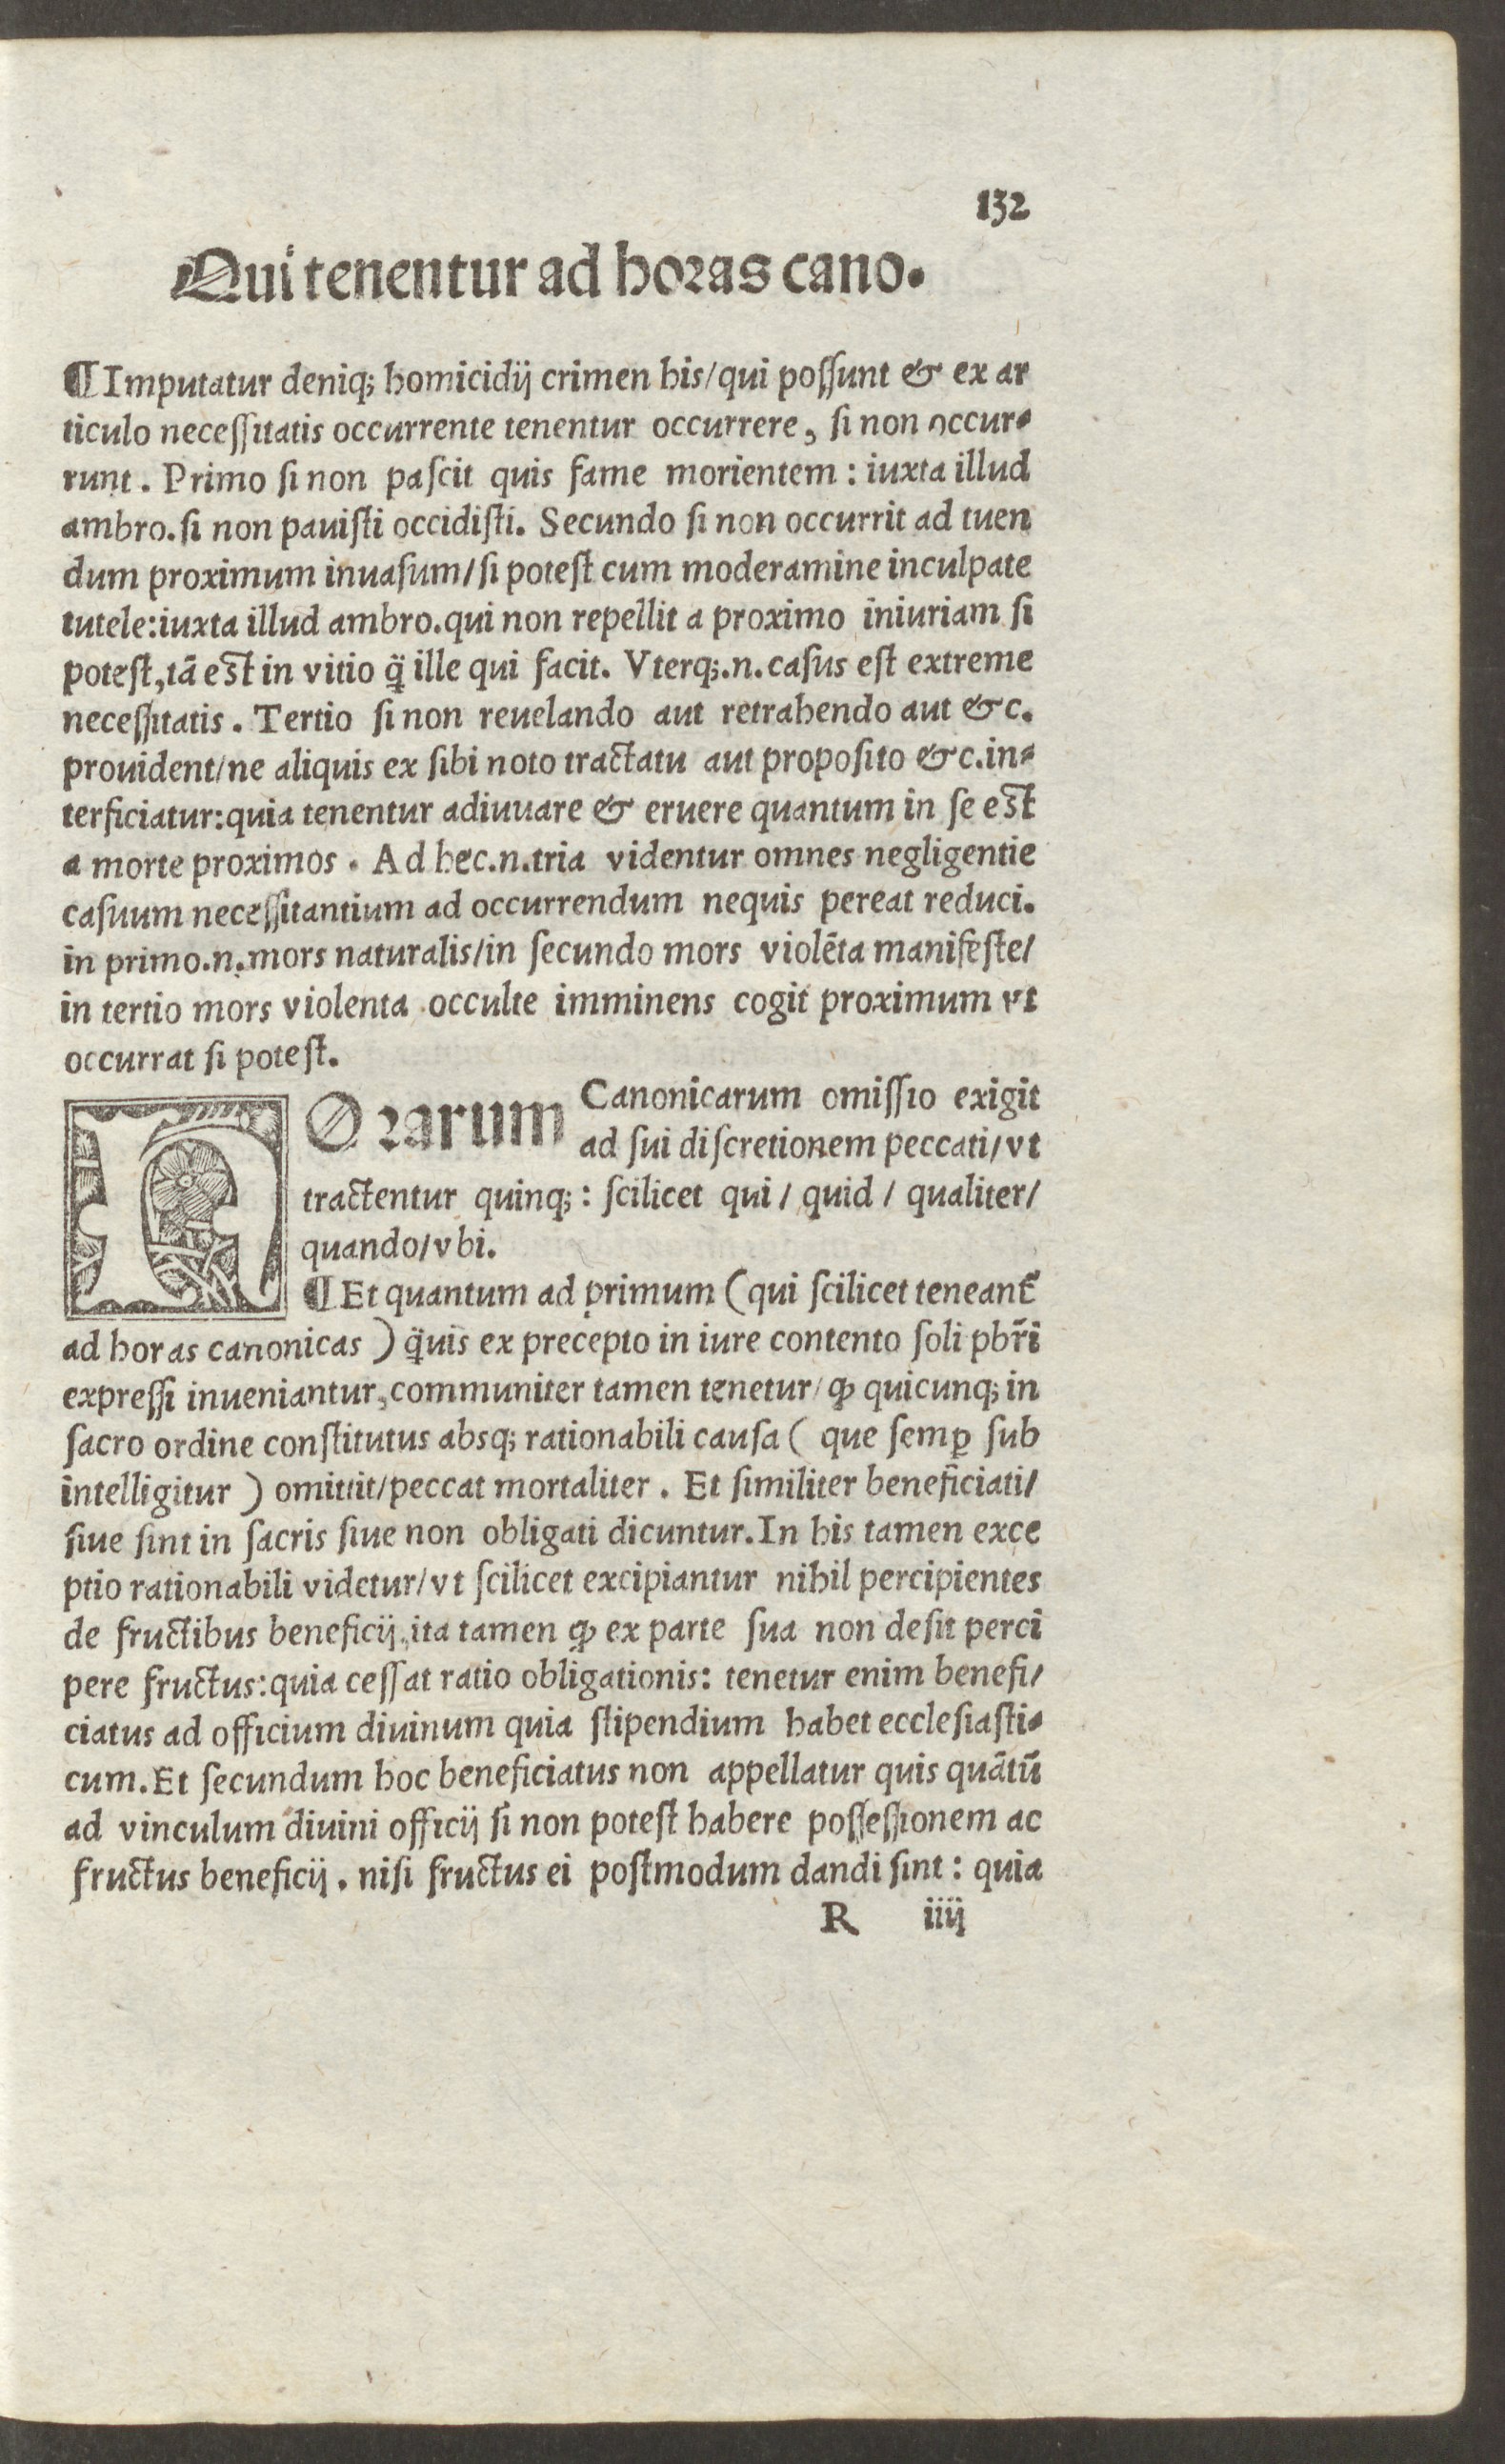 132
Qui tenentur ad horas cano.
¶Imputatur deniq; homicidij crimen his/qui possunt & ex ar
ticulo necessitatis occurrente tenentur occurrere, si non occur-
runt. Primo si non pascit quis fame morientem: iuxta illud
ambro. si non pauisti occidisti. Secundo si non occurrit ad tuen
dum proximum inuasum/si potest cum moderamine inculpate
tutele: iuxta illud ambro. qui non repellit a proximo iniuriam si
potest, tā est in vitio q̄̄ ille qui facit. Vterq;.n. casus est extreme
necessitatis. Tertio si non reuelando aut retrahendo aut &c.
prouident/ne aliquis ex sibi noto tractatu aut proposito &c. in-
terficiatur: quia tenentur adiuuare & eruere quantum in se est
a morte proximos. Ad hec.n.tria videntur omnes negligentie
casuum necessitantium ad occurrendum nequis pereat reduci.
in primo.n.mors naturalis/in secundo mors violēta manifeste/
in tertio mors violenta occulte imminens cogit proximum vt
occurrat si potest.
HOrarum Canonicarum omissio exigit
ad sui discretionem peccati/vt
tractentur quinq;: scilicet qui/ quid/ qualiter/
quando/vbi.
¶Et quantum ad primum (qui scilicet teneant᷑
ad horas canonicas) q̄̄uis ex precepto in iure contento soli pbr̄i
expressi inueniantur, communiter tamen tenetur/ ꝙ quicunq; in
sacro ordine constitutus absq; rationabili causa ( que semꝑ sub
intelligitur ) omittit/peccat mortaliter. Et similiter beneficiati/
siue sint in sacris siue non obligati dicuntur. In his tamen exce
ptio rationabili videtur/vt scilicet excipiantur nihil percipientes
de fructibus beneficij, ita tamen ꝙ ex parte sua non desit perci
pere fructus: quia cessat ratio obligationis: tenetur enim benefi/
ciatus ad officium diuinum quia stipendium habet ecclesiasti-
cum. Et secundum hoc beneficiatus non appellatur quis quātū
ad vinculum diuini officij si non potest habere possessionem ac
fructus beneficij. nisi fructus ei postmodum dandi sint: quia
R iiij